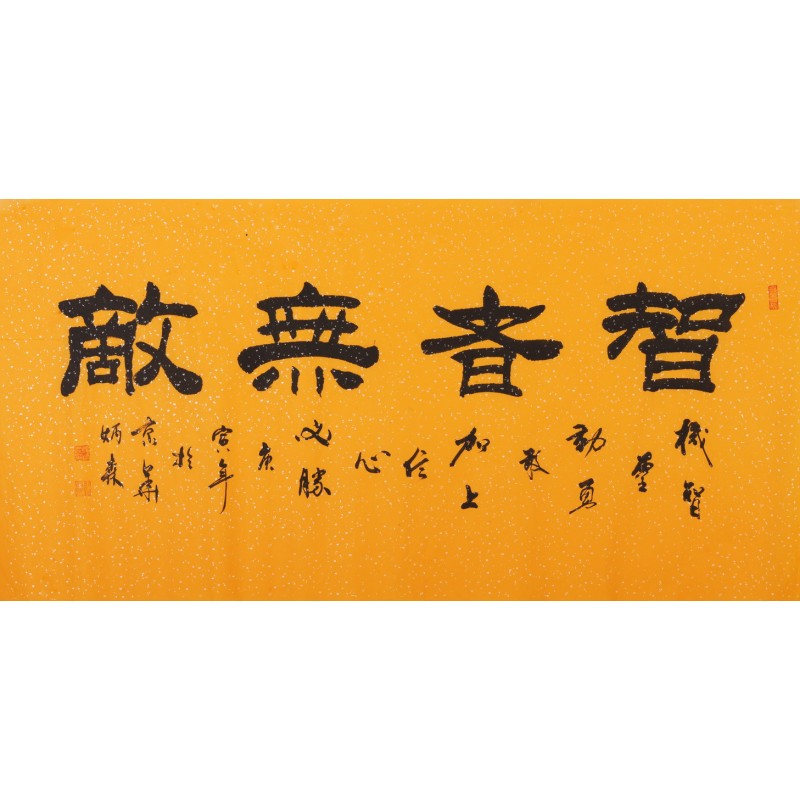 智者無敵
機智
靈
動勇
敢
加上
信
心
必勝
庚
寅年
於
京華
炳森